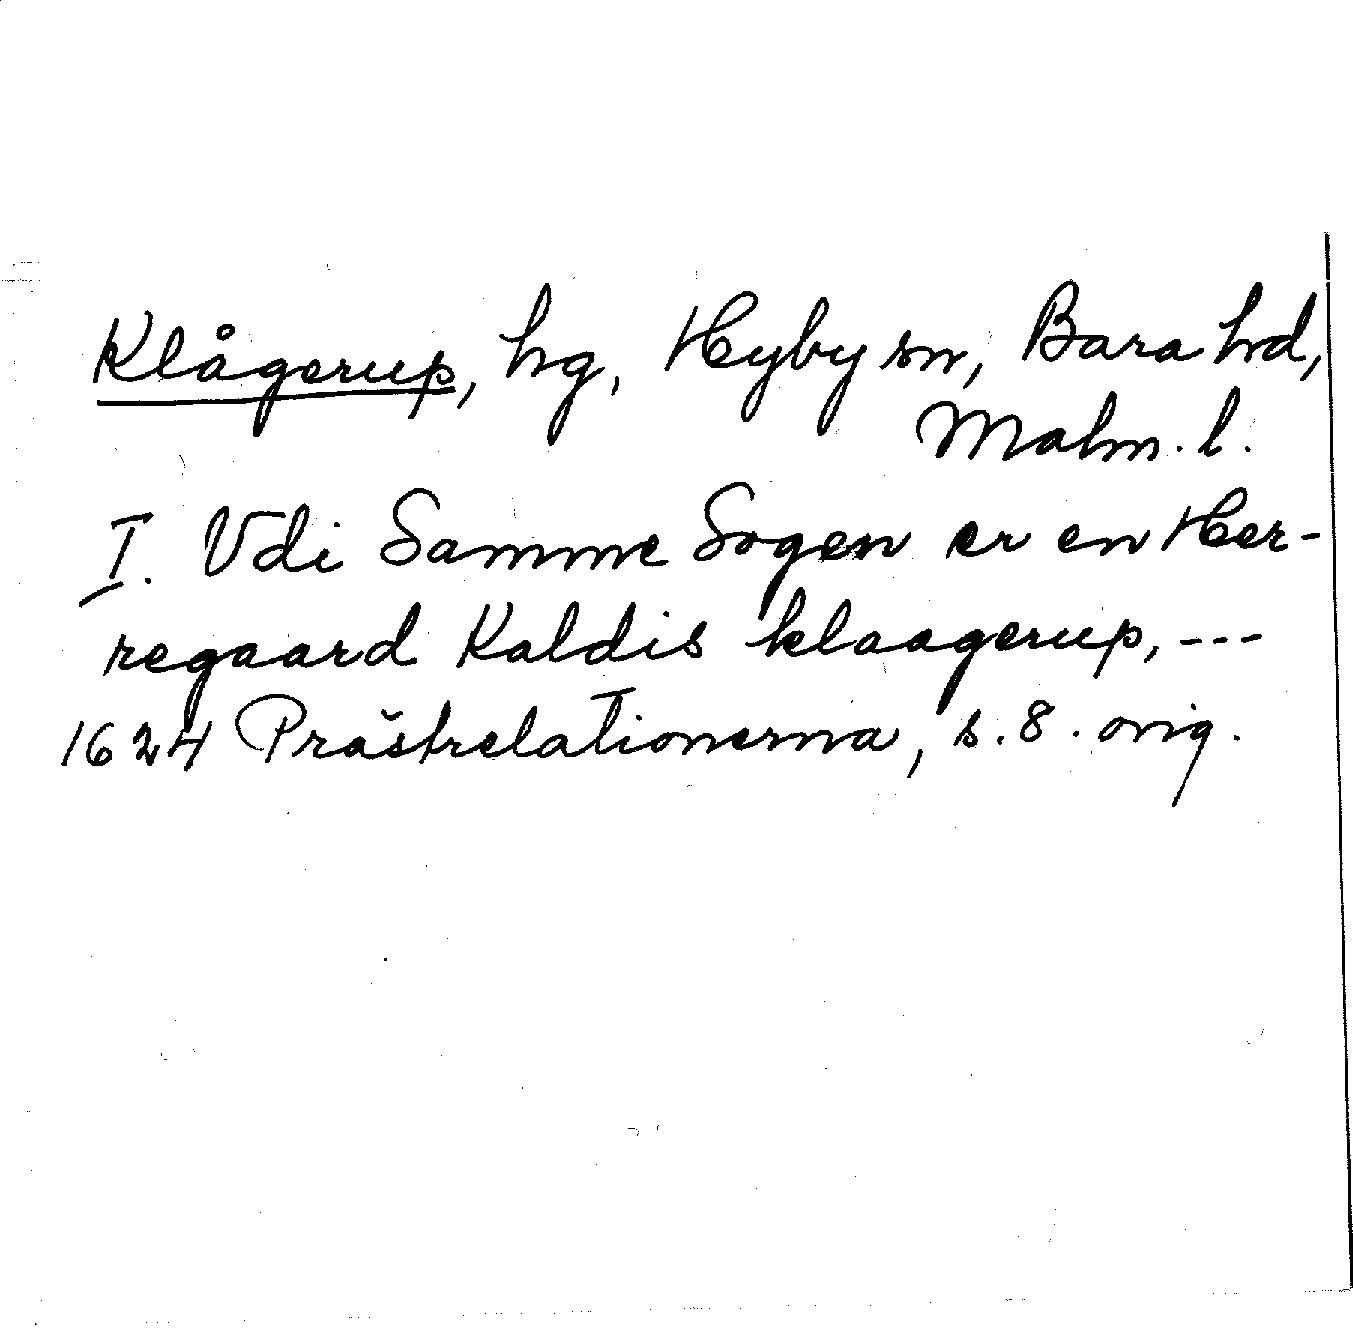 Klågerup, hg, Hyby sn, Bara hd,
Malm. l.
I. Vdi Samme Sogen er en Her-
regaard Kaldis klaagerup, ---
1624 Prästrelationerna, s. 8. orig.